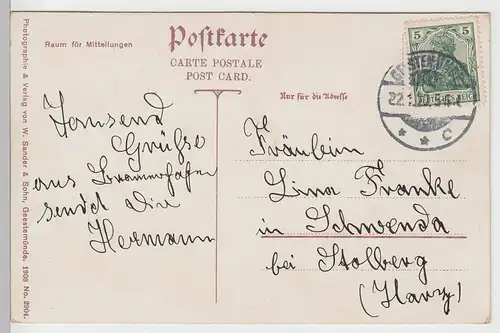 Postkarte
CARTE POSTALE
POST CARD.
Raum für Mitteilungen
Nur für die Adresse
5 5
DEUTSCHES REICH
Tausend
Grüße
aus Bremerhafen
sendet Dir
Hermann
Fräulein
Lina Franke
in Schwenda
bei Stolberg
(Harz)
Photographie & Verlag von W. Sander & Sohn, Geestemünde. 1908 No. 2904.